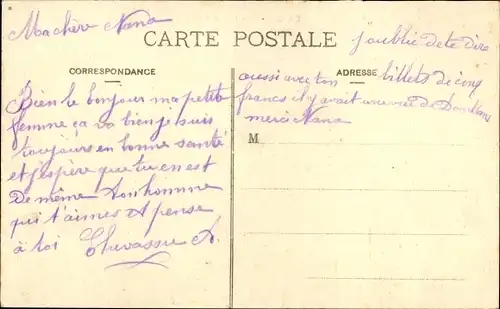 Ma chère Nana
CARTE POSTALE
CORRESPONDANCE
Bien le bonjour ma petite
femme ça va bien je suis
toujours en bonne santé
et j'espère que tu en est
De même ton homme
qui t'aimes et pense
à toi Chevassu A.
j'oublie de te dire
ADRESSE
aussi avec ton billets de cinq
francs il y avait une vue de
merci Nana
M